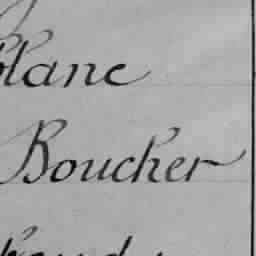 blanc
Boucher